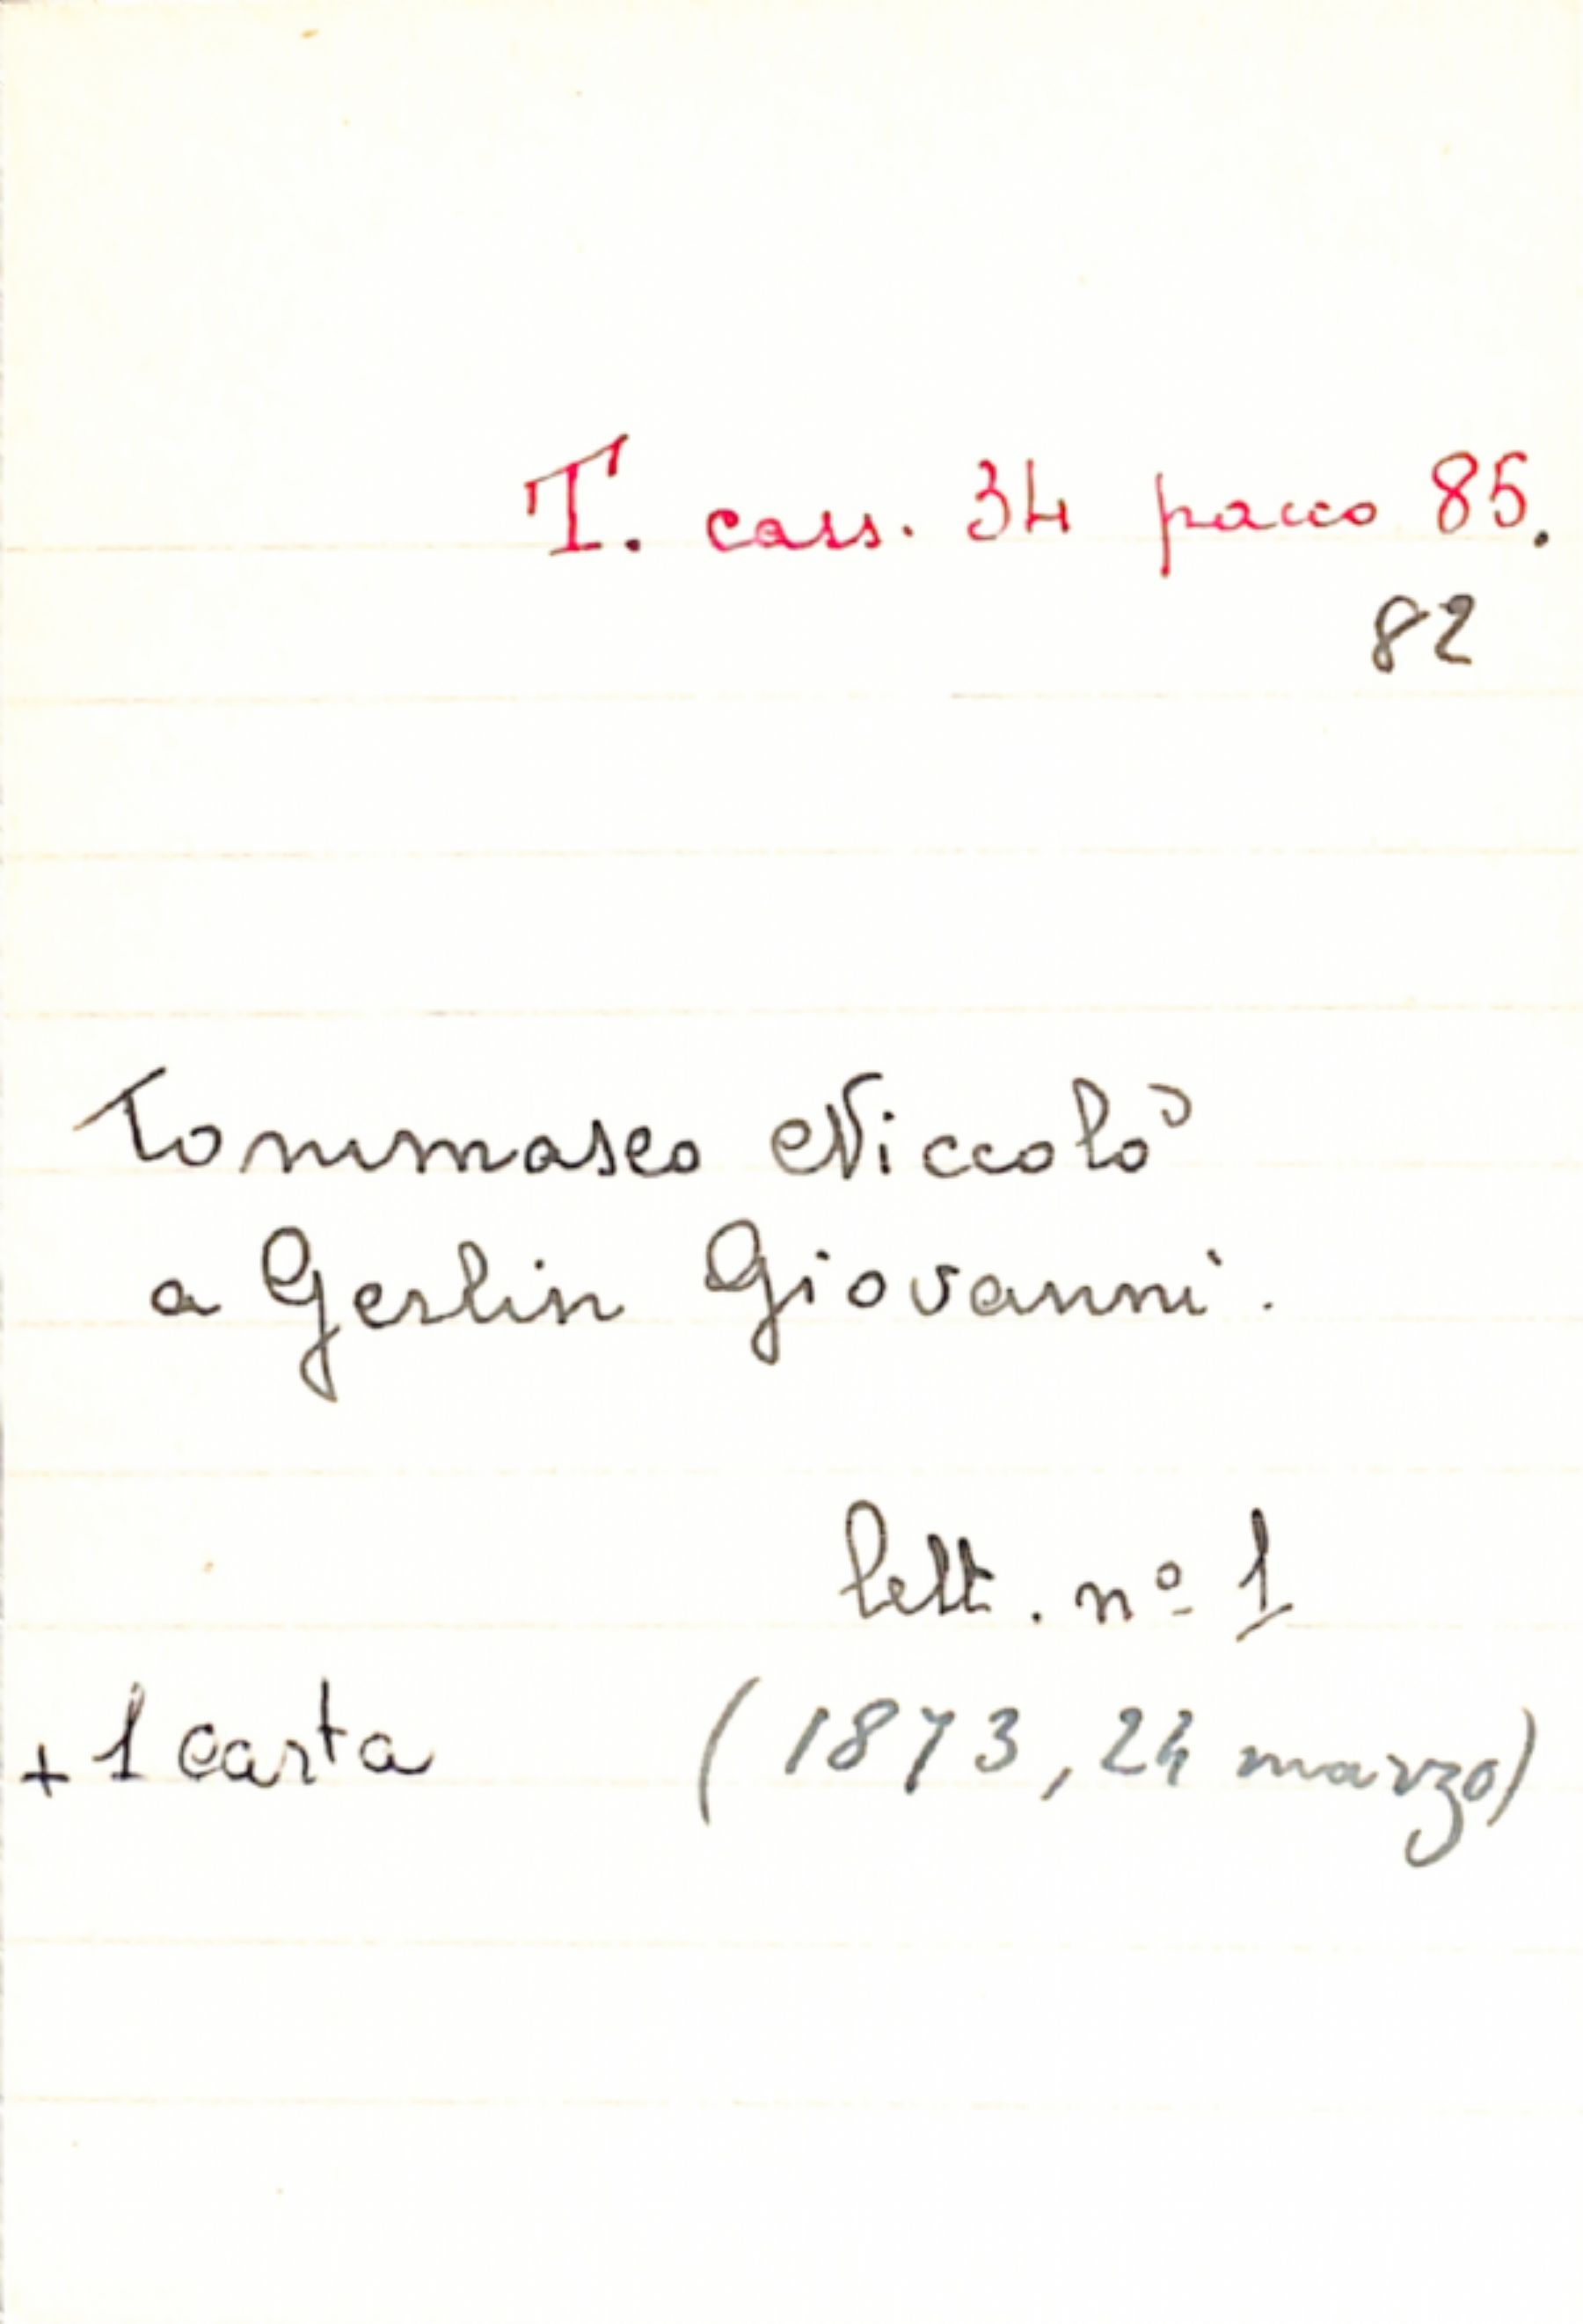 T. cass. 34 pacco 85.
82
Tommaseo Niccolò
a Gerlin Giovanni.
lett. nº 1
+ 1 carta (1873, 24 marzo)